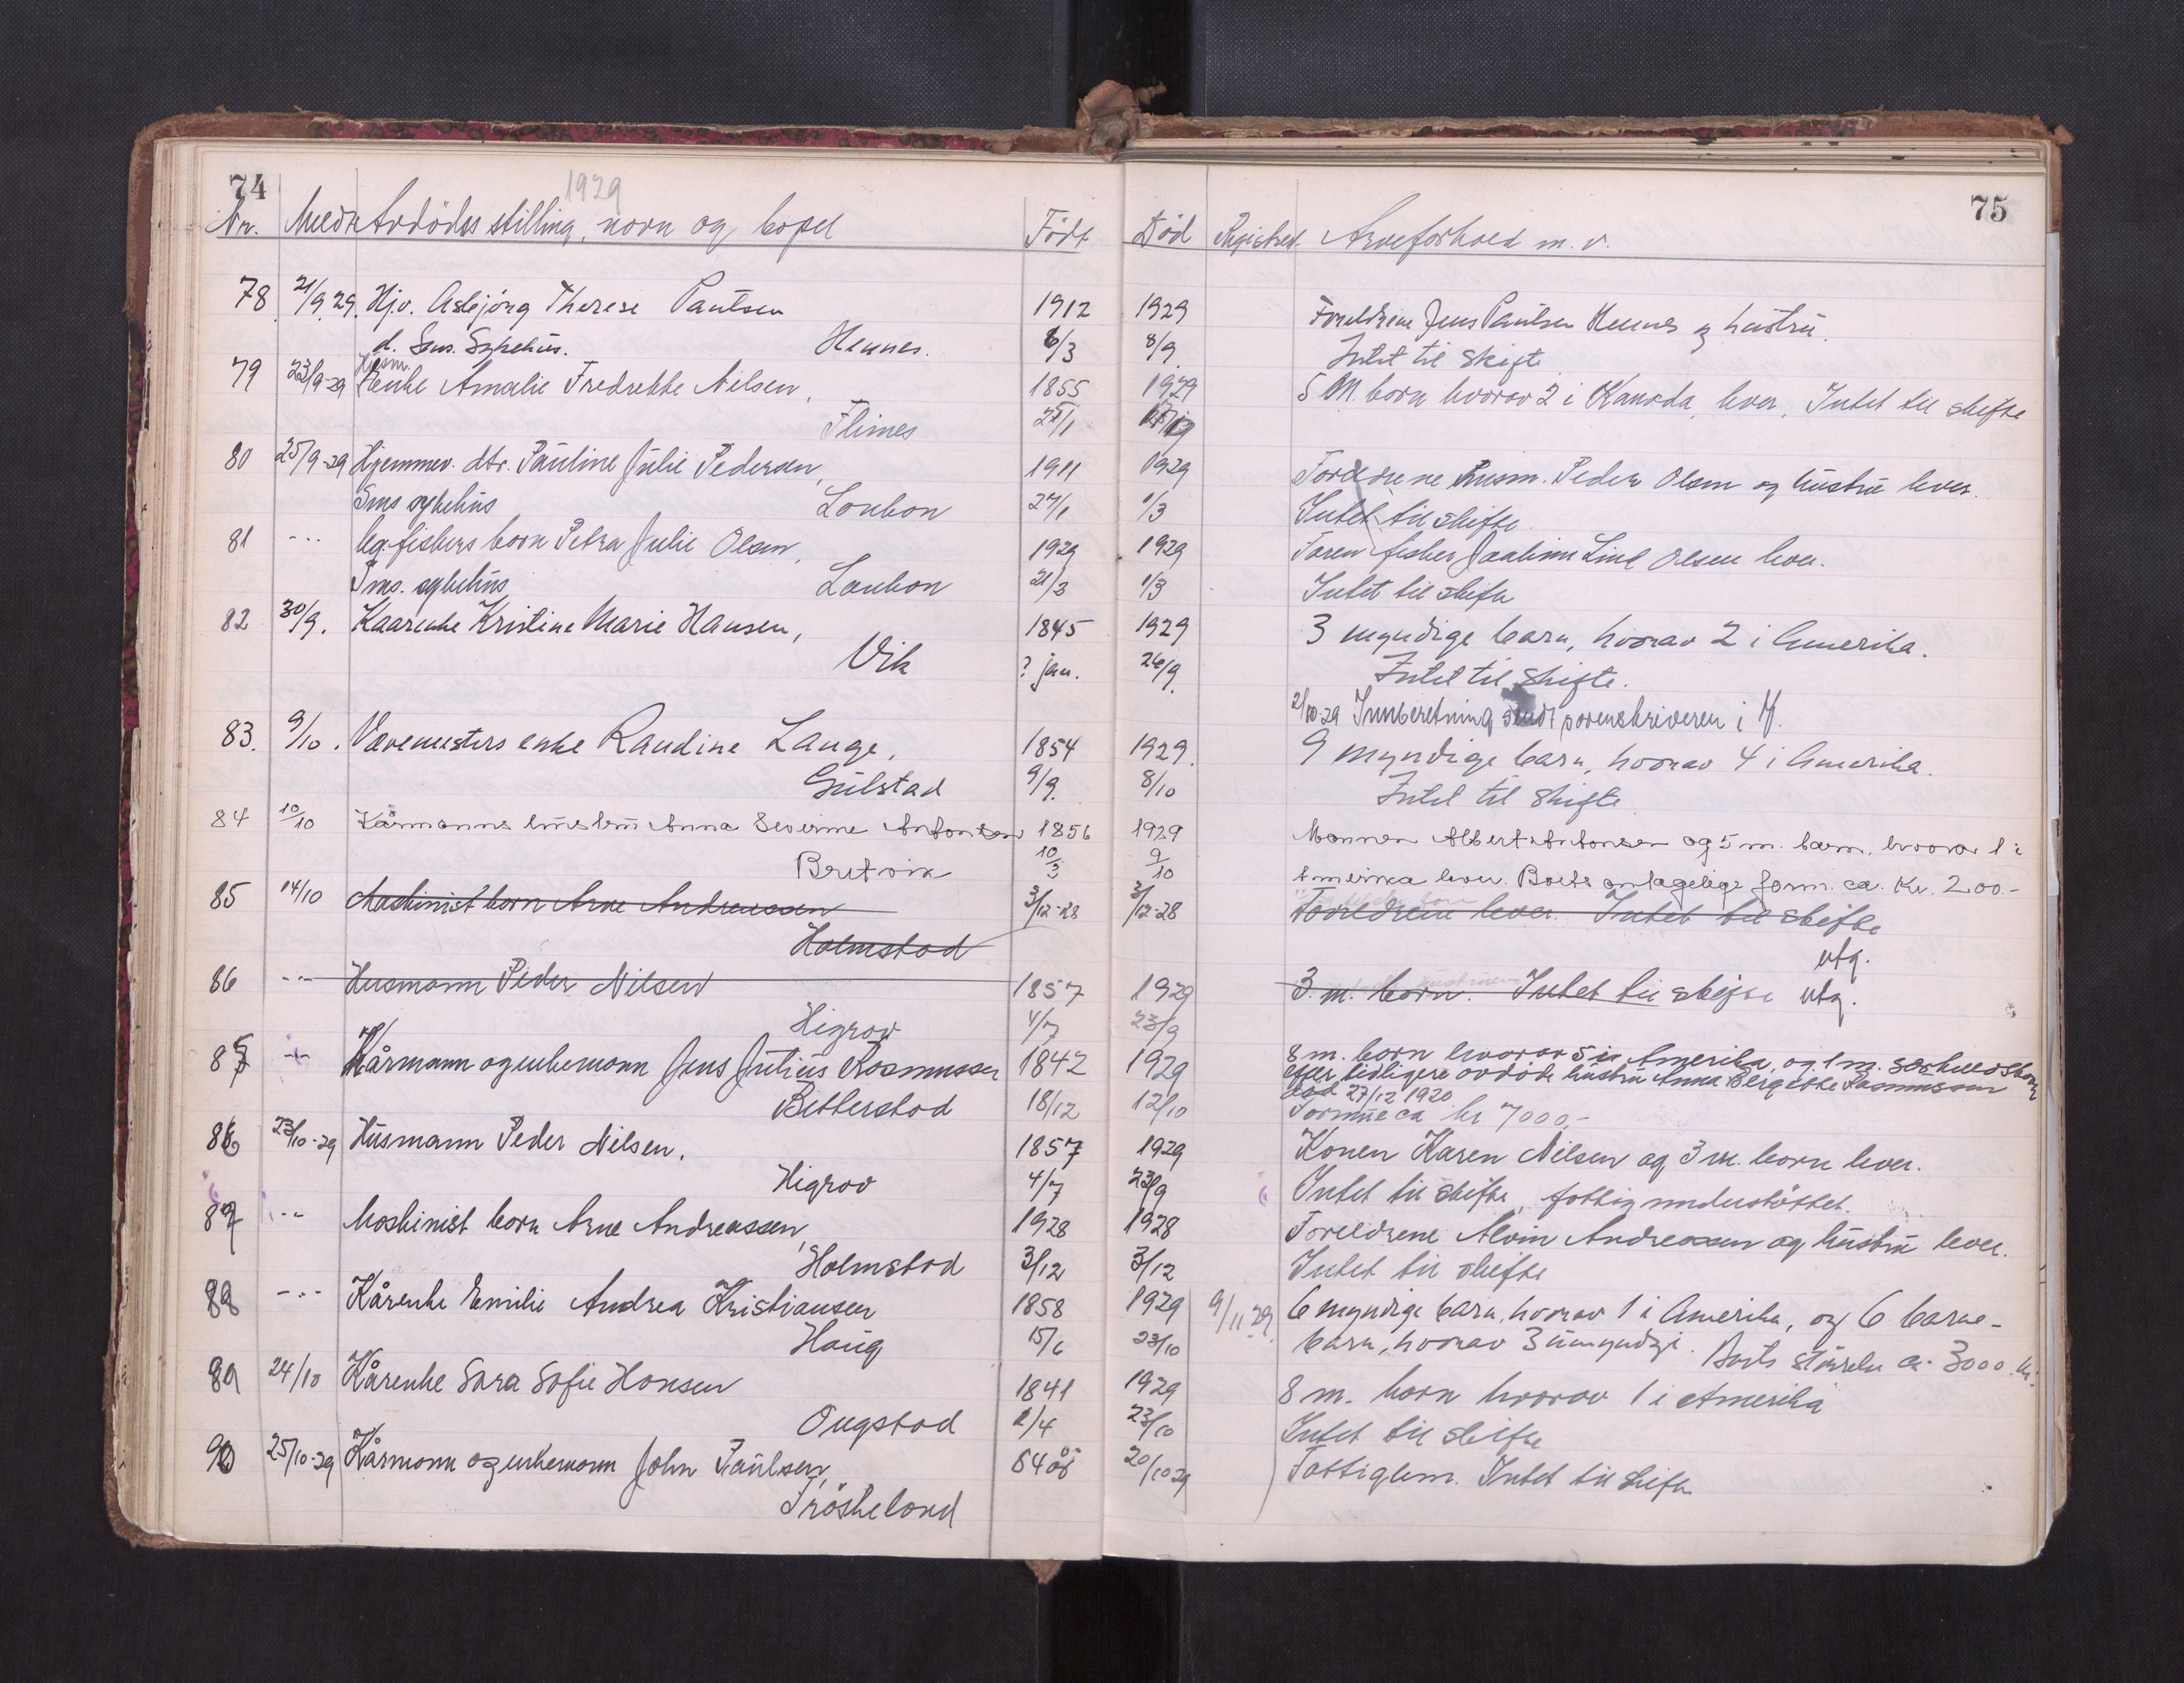 74
1929
Nr. Meldt Avdödes stilling, navn og bopel Födt Död Registret Arveforhold m. v.
75
78 21/9 29. Hjv. Asbjörg Therese Paulsen 1912 1929 Foreldrene Jens Paulsen Hennes og hustru.
d. Sms. Sykehus. Hennes. 6/3 8/9 Intet til skifte
79 23/9-29 Husm. Enke Amalie Fredrikke Nilsen, 1855 1929 5 M. born hvorav 2 i Kanada, lever. Intet til skifte
Flimes 25/1
80 25/9-29 Hjemmev. dtr. Pauline Julie Pedersen, 1911 1929 Foreldrene Husm. Peder Olsen og hustru lever.
Sms sykehus Lonkon 27/1 1/3 Intet til skifte
81 -"- Ug. fiskers born Petra Julie Olsen, 1929 1929 Faren fisker Joakim Linl Olsen lever.
Sms. sykehus Lonkon 21/3 1/3 Intet til skifte
82 30/9. Kaarenke Kristine Marie Hansen, 1845 1929 3 myndige barn, hvorav 2 i Amerika.
Vik ? jan. 26/9. Intet til skifte.
2/10-29 Innberetning sendt sorenskriveren i
83. 9/10. Varemesters enke Randine Lange, 1854 1929. 9 myndige barn, hvorav 4 i Amerika.
Gulstad 9/9. 8/10 Intet til skifte
84 10/10 Kårmanns hustru Anna Severine Antonsen 1856 1929 Mannen Albert Antonsen og 5 m. barn, hvorav 1 i
Bretvik 10/3 9/10 Amerika lever. Boets antagelige form. ca. Kr. 200.-
85 14/10 Maskinist born Arne Andreassen 3/12-28 3/12-28 Foreldrene lever. Intet til skifte
Holmstad utg.
86 -"- Husmann Peder Nilsen 1857 1929 3. m. born. Intet til skifte utg.
Higrov 4/7 23/9
85 -"- Kårmann og enkemann Jens Julius Rasmussen 1842 1929 8 m. born hvorav 5 i Amerika, og 1 m. særkuldsborn
efter tidligere avdöde hustru Anna Bergeske Rasmussen
Betterstad 18/12 12/10 död 27/12 1920
Formue ca kr 7000,-
86 23/10-29 Husmann Peder Nilsen. 1857 1929 Konen Karen Nilsen og 3 m. born lever.
Higrov 4/7 23/9 Intet til skifte, fattigunderstöttet.
87 -"- Maskinist born Arne Andreassen, 1928 1928 Foreldrene Alvin Andreassen og hustru lever.
Holmstad 3/12 3/12 Intet til skifte
88 -"- Kårenke Emilie Andrea Kristiansen 1858 1929 9/11 29. 6 myndige barn, hvorav 1 i Amerika, og 6 barne-
Haug 15/6 23/10 barn, hvorav 3 umyndige. Boets störrelse ca. 3000 kr.
89 24/10 Kårenke Sara Sofie Hansen 1841 1929 8 m. born hvorav 1 i Amerika
Ongstad 2/4 23/10 Intet til skifte
90 25/10-29 Kårmann og enkemann John Paulsen, 64 år 20/10 29 Fattiglem. Intet til skifte
Fröskeland